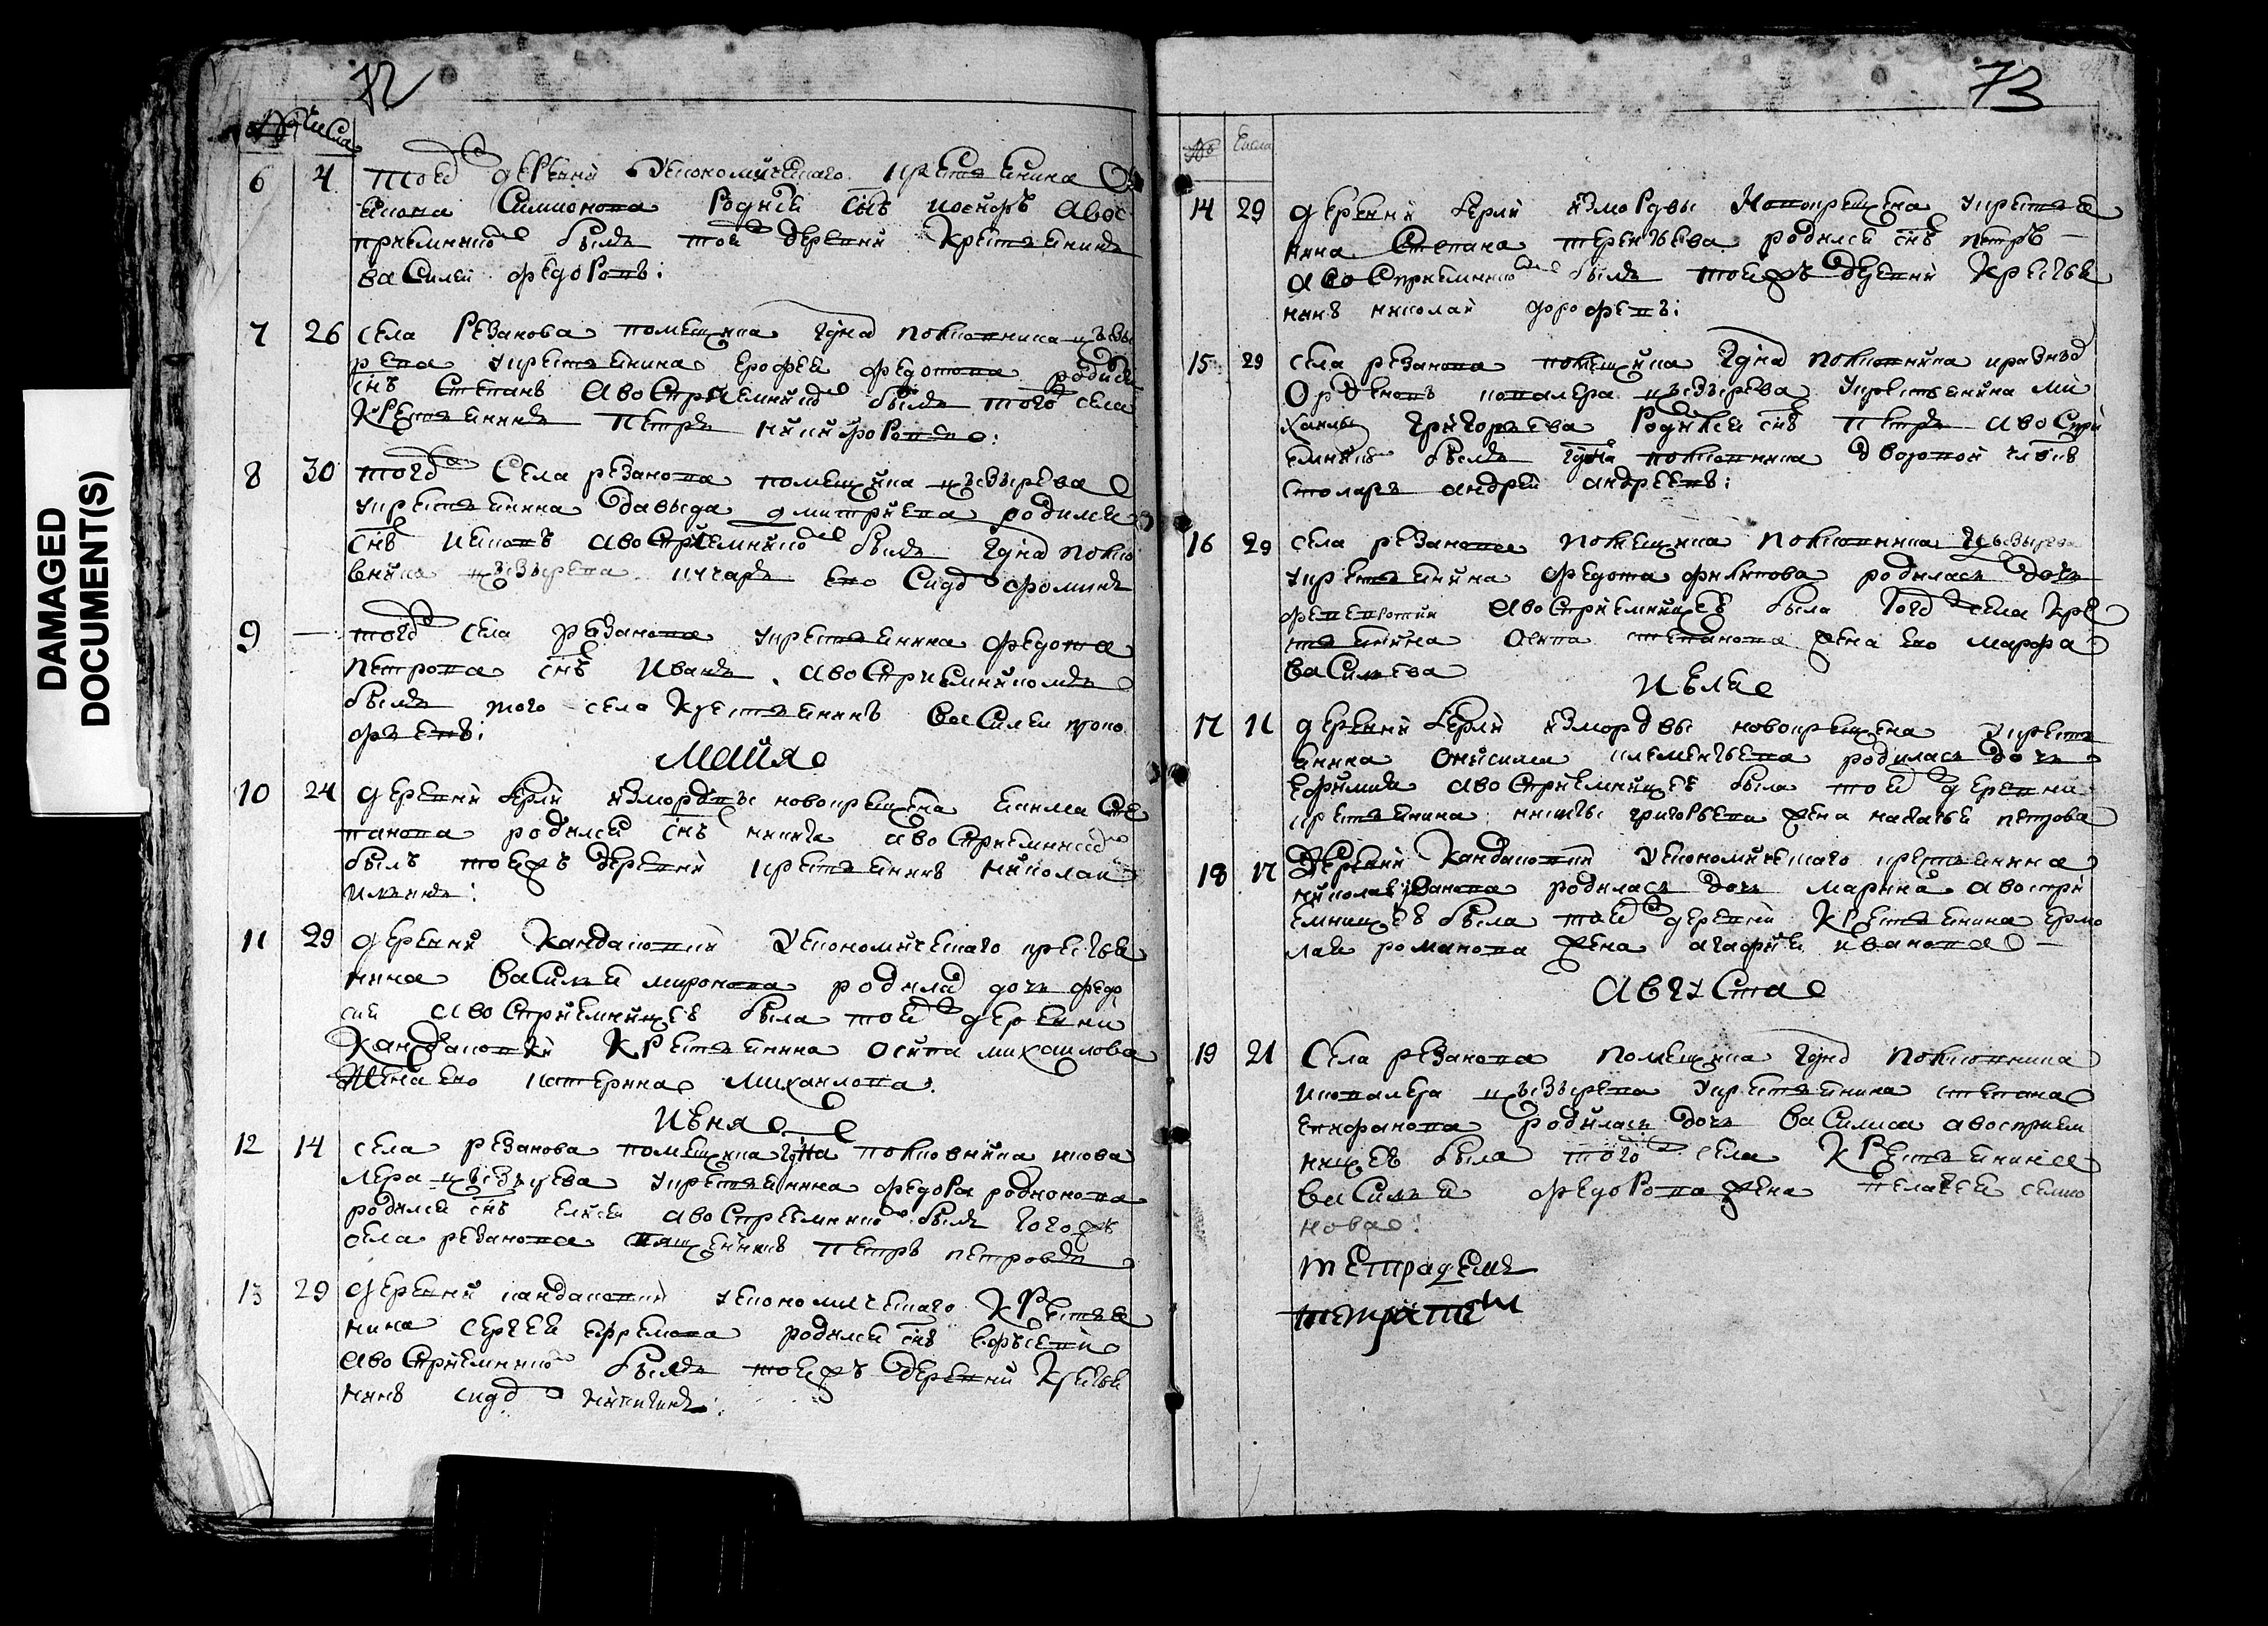 DAMAGED
DOCUMENT(S)
72
№ числа
6 4 той деревни економическаго крестьянина
Симионова родися снъ иосифъ авос
приемникъ былъ той деревни крестьянинъ
василей федоровъ:
7 26 села резанова помещика гдна полковника
крестьянина ерофея федотова родися
снъ степанъ авосприемникъ былъ того села
крестьянинъ петръ никифоровъ:
8 30 тогожъ села резанова помещика цызырева
укрестьянина давыда дмитриева родился
снъ авосприемникъ былъ гдна полко
вника цызырева его сидоръ фоминъ
9 — тогожъ села резанова укрестьянина федота
петрова снъ иванъ авосприемникомъ
былъ того села крестьянинъ василеи
маия
10 24 деревни ерли измордвы новокрещена екима сте
панова родился снъ никита авосприемникъ
былъ тоежъ деревни крестьянинъ николаи
ильинъ:
11 29 деревни кандаковки уекономическаго крестья
нина василья миронова родила дочь федо
сия авосприемницеѣ была той деревни
кандаковки крестьянина осипа михаилова
жена ево катерина михаилова:
июня
12 14 села резанова помещика гдна полковника кова
лера цызырева укрестьянина федора родионова
родился снъ елисеи авосприемникъ былъ тогожъ
села резанова священникъ петръ петровъ
13 29 деревни кандаковки уекономическаго крестья
нина сергея ефремова родился снъ евсевей
авосприемникъ былъ тоежъ деревни крестья
нинъ сидоръ никитинъ:
73
№ числа
14 29 деревни ерли измордвы новокрещена укрестья
нина степана терентьева родился снъ петръ —
авосприемникъ былъ тоежъ деревни крестья
нинъ николаи дорофеевъ:
15 29 села резанова помещика гдна полковника иразныхъ
орденовъ кавалера цызырева укрестьянина ми
хаилы григорьева родился снъ петръ авоспри
емникъ былъ гдна полковника дворовой члвкъ
столяръ андрей андреевъ:
16 29 села резанова помещика полковника цызырева
укрестьянина федота филипова родилась дочь
авосприемницеѣ была того села кре
стьянина осипа степанова жена ево марфа
васильева
июля
17 11 деревни ерли измордвы новокрещена укресть
янина онисима клементьева родилась дочь
ефимия авосприемницеѣ была той деревни
крестьянина никиты григорьева жена наталья петрова
18 17 деревни кандаковки уекономическаго крестьянина
николая иванова родилась дочь марина авоспри
емницеѣ была той деревни крестьянина ермо
лая романова жена агафия иванова —
августа
19 21 села резанова помещика гдна полковника
икавалера цызырева укрестьянина степана
епифанова родилась дочь василиса авосприем
ницеѣ была того села крестьянина
василья федорова жена пелагея семио
нова:
тетрадемъ